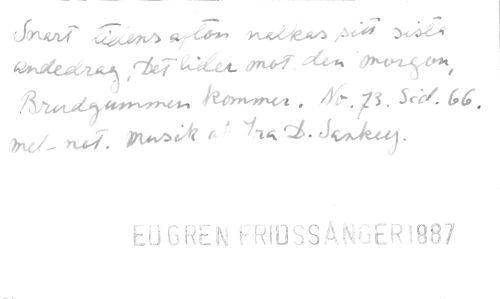 Snart tidens afton nalkas sitt sista
andedrag, Det lider mot den morgon,
Brudgummen kommer. No. 73. Sid. 66.
mel-not. Musik af Ira D. Sankey.
EDGREN FRIDSSÅNGER 1887